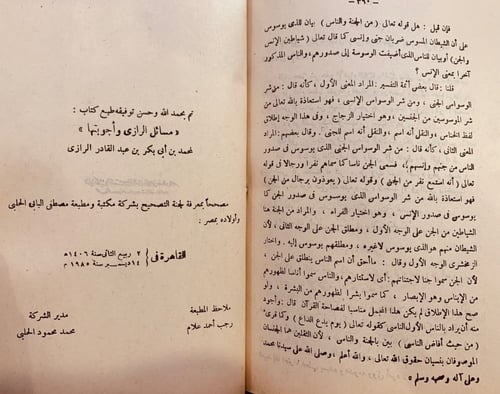 — ٣٩٠ —
فإن قيل : هل قوله تعالى ( من الجنة والناس ) بيان للذى يوسوس
على أن الشيطان الموسوس ضربان جنى وإنسى كما قال تعالى ( شياطين الإنس
والجن ) أوبيان للناس الذى أضيفت الوسوسة إلى صدورهم، والناس المذكور
آخرا بمعنى الإنس ؟
قلنا : قال بعض أئمة التفسير : المراد المعنى الأول ، كأنه قال : من شر
الوسواس الجنى ، ومن شر الوسواس الإنسى ، فهو استعاذة بالله تعالى من
شر الموسوسين من الجنسين ، وهو اختيار الزجاج ، وفى هذا الوجه إطلاق
لفظ الخناس ، والنقلى أنه اسم ، والنقلى أنه اسم للجنى . وقال بعضهم : المراد
المعنى الثانى ، كأنه قال : من شر الوسواس الجنى الذى يوسوس فى صدور
الناس من جنهم وإنسهم ، فسمى الجن ناسا كما سماهم نفرا ورجالا فى قوله
تعالى ( أنه استمع نفر من الجن ) وقوله تعالى ( يعوذون برجال من الجن )
فهو استعاذة بالله من شر الوسواس الذى يوسوس فى صدور الجن كما
يوسوس فى صدور الإنس ، وهو اختيار الفراء ، والمراد من الجنة هنا
الشياطين من الجن على الوجه الأول ، ومطلق الجن على الوجه الثانى ، لأن
الشيطان منهم هو الذى يوسوس لاغيره ، ومطلقهم يوسوس إليه . واختار
الزمخشرى الوجه الأول وقال : ما أحق أن اسم الناس ينطلق على الجن ،
لأن الجن سموا جنا لاجتنانهم : أى لاستتارهم، والناس سموا أناسا لظهورهم
من الإيناس وهو الإبصار ، كما سموا بشرا لظهورهم من البشرة ، ولو
صح هذا الإطلاق لم يكن هذا المجمل مناسبا لفصاحة القرآن قال : وأجود
منه أن يراد بالناس الأول الناسى كقوله تعالى ( يوم يدع الداع ) وكما قرئ
( من حيث أفاض الناسى ) بين بالجنة والناس ، لأن الثقلين هما الجنسان
الموصوفان بنسيان حقوق الله تعالى ، والله أعلم ، وصلى الله على سيدنا محمد
وعلى آله وصحبه وسلم »
تم بحمد الله وحسن توفيقه طبع كتاب :
« مسائل الرازى وأجوبتها »
لمحمد بن أبى بكر بن عبد القادر الرازى
مصححاً بمعرفة لجنة التصحيح بشركة مكتبة ومطبعة مصطفى البابى الحلبى
وأولاده بمصر :
القاهرة فى { ٢ ربيع الثانى سنة ١٤٠٦ هـ
١٤ ديسمبر سنة ١٩٨٥ م
ملاحظ المطبعة
رجب أحمد علام
مدير الشركة
محمد محمود الحلبى